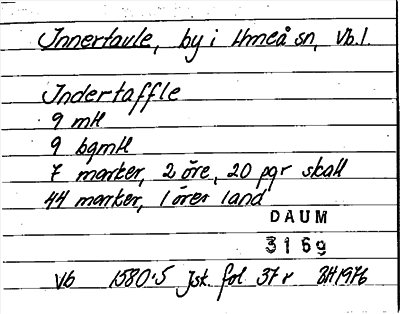 Innertavle, by i Umeå sn, Vb.l.
Indertaffle
9 mtl
9 bgmtl
7 marker, 2 öre, 20 pgr skatt
44 marker, 1 öres land
DAUM
3169
Vb 1580:5 Jsk. fol. 37 r BH 1976